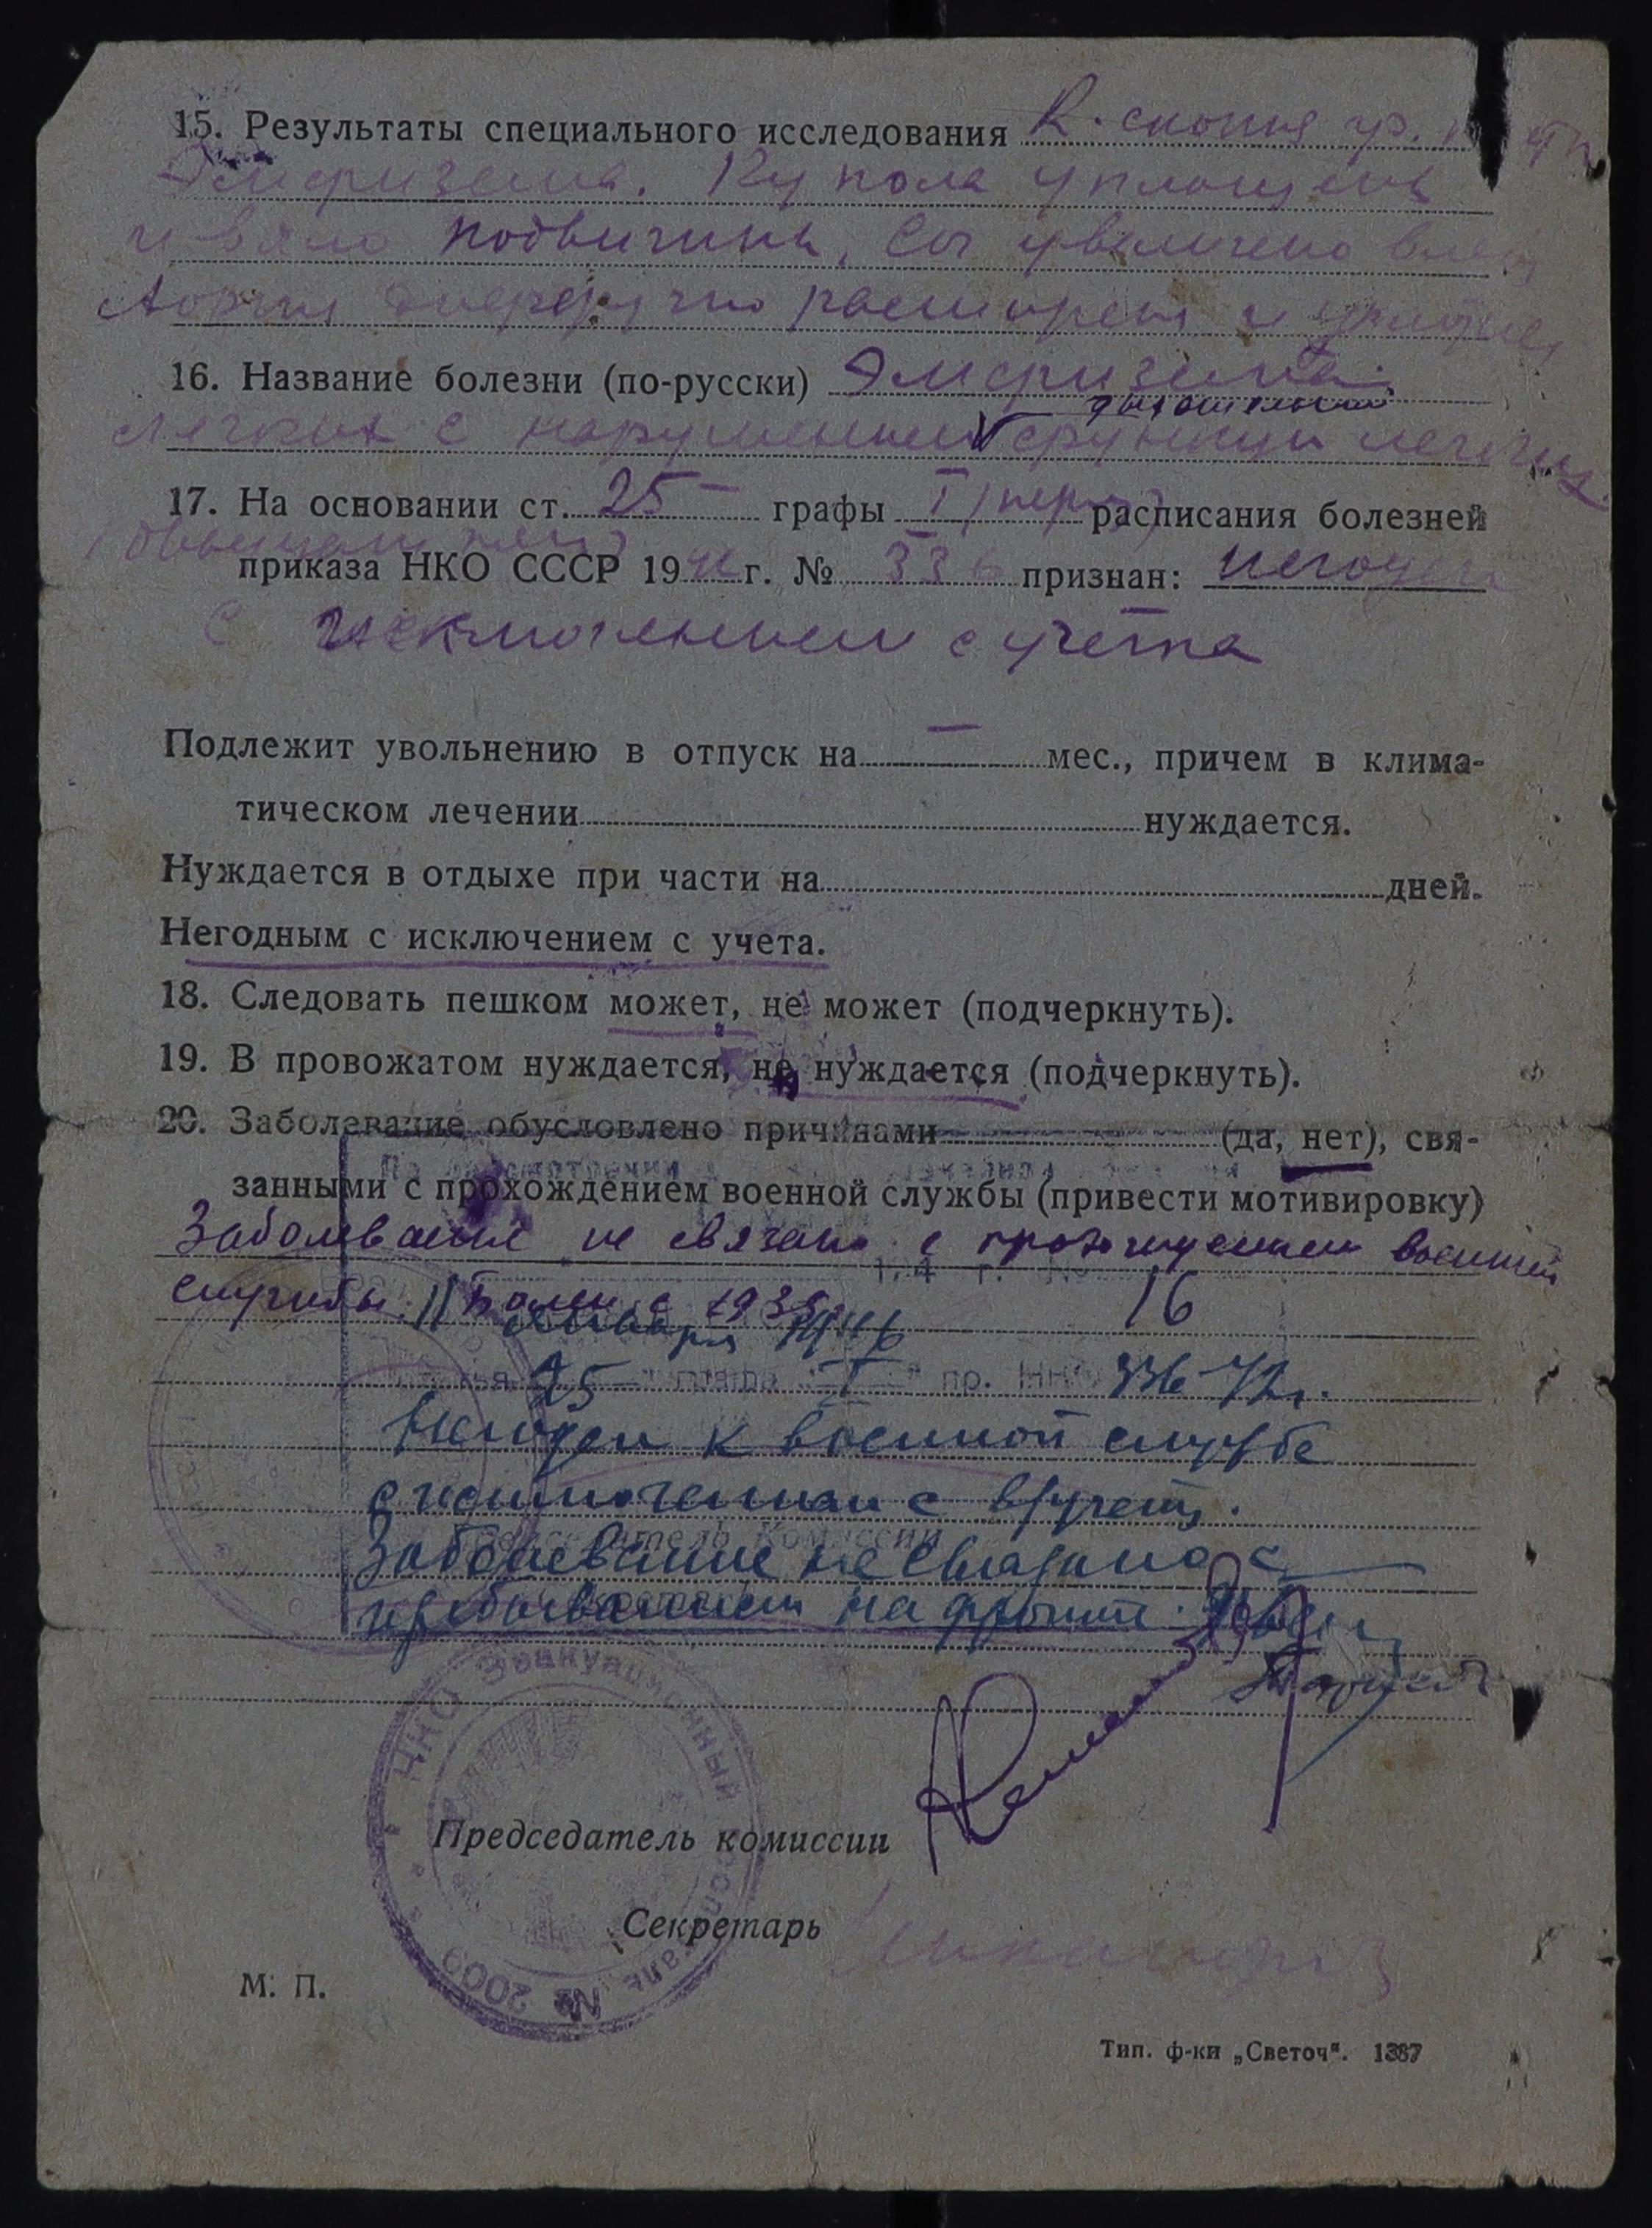 15. Результаты специального исследования R-скопия гр. кл.
Эмфизема. Купола уплощены
и вяло подвижны. Cor увеличено влево
Аорта диффузно расширена и
16. Название болезни (по-русски) Эмфизема
дыхательной
легких с нарушением функции легких.
17. На основании ст. 25 графы I расписания болезней
приказа НКО СССР 1942 г. № 336 признан: негоден
с исключением с учета
Подлежит увольнению в отпуск на — мес., причем в клима-
тическом лечении нуждается.
Нуждается в отдыхе при части на дней.
Негодным с исключением с учета.
18. Следовать пешком может, не может (подчеркнуть).
19. В провожатом нуждается, не нуждается (подчеркнуть).
20. Заболевание обусловлено причинами (да, нет), свя-
занными с прохождением военной службы (привести мотивировку)
Заболевание не связано с прохождением военной
службы. Болен с 1935 16
11 января 1946
25 графа I пр. НКО 336-42 г.
Негоден к военной службе
с исключением с в/учета.
Председатель Комиссии
Заболевание не связано с
пребыванием на фронте.
НКО Эвакуационный госпиталь № 2009
Председатель комиссии
Секретарь
М. П.
Тип. ф-ки „Светоч". 1387